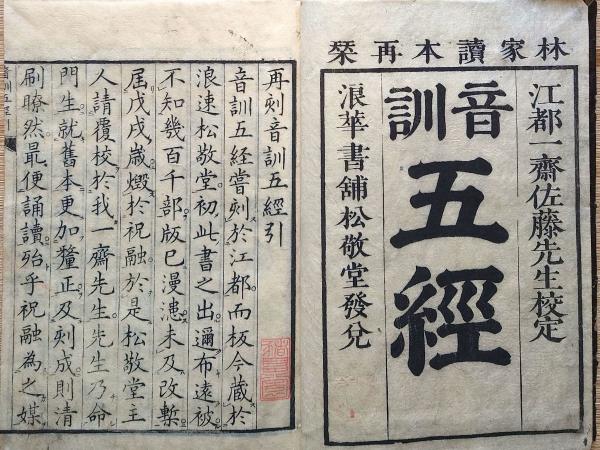 林家讀本再栞
江都一齋佐藤先生校定
音訓
五經
浪華書舖松敬堂發兌
再刻音訓五經引
音訓五經嘗刻於江都而板今藏於
浪速松敬堂初此書之出邇布遠被
不知幾百千部版已漫漶未及改槧
屆戊戌歲燬於祝融於是松敬堂主
人請覆校於我一齋先生先生乃命
門生就舊本更加釐正及刻成則清
刷瞭然最便誦讀殆乎祝融為之媒